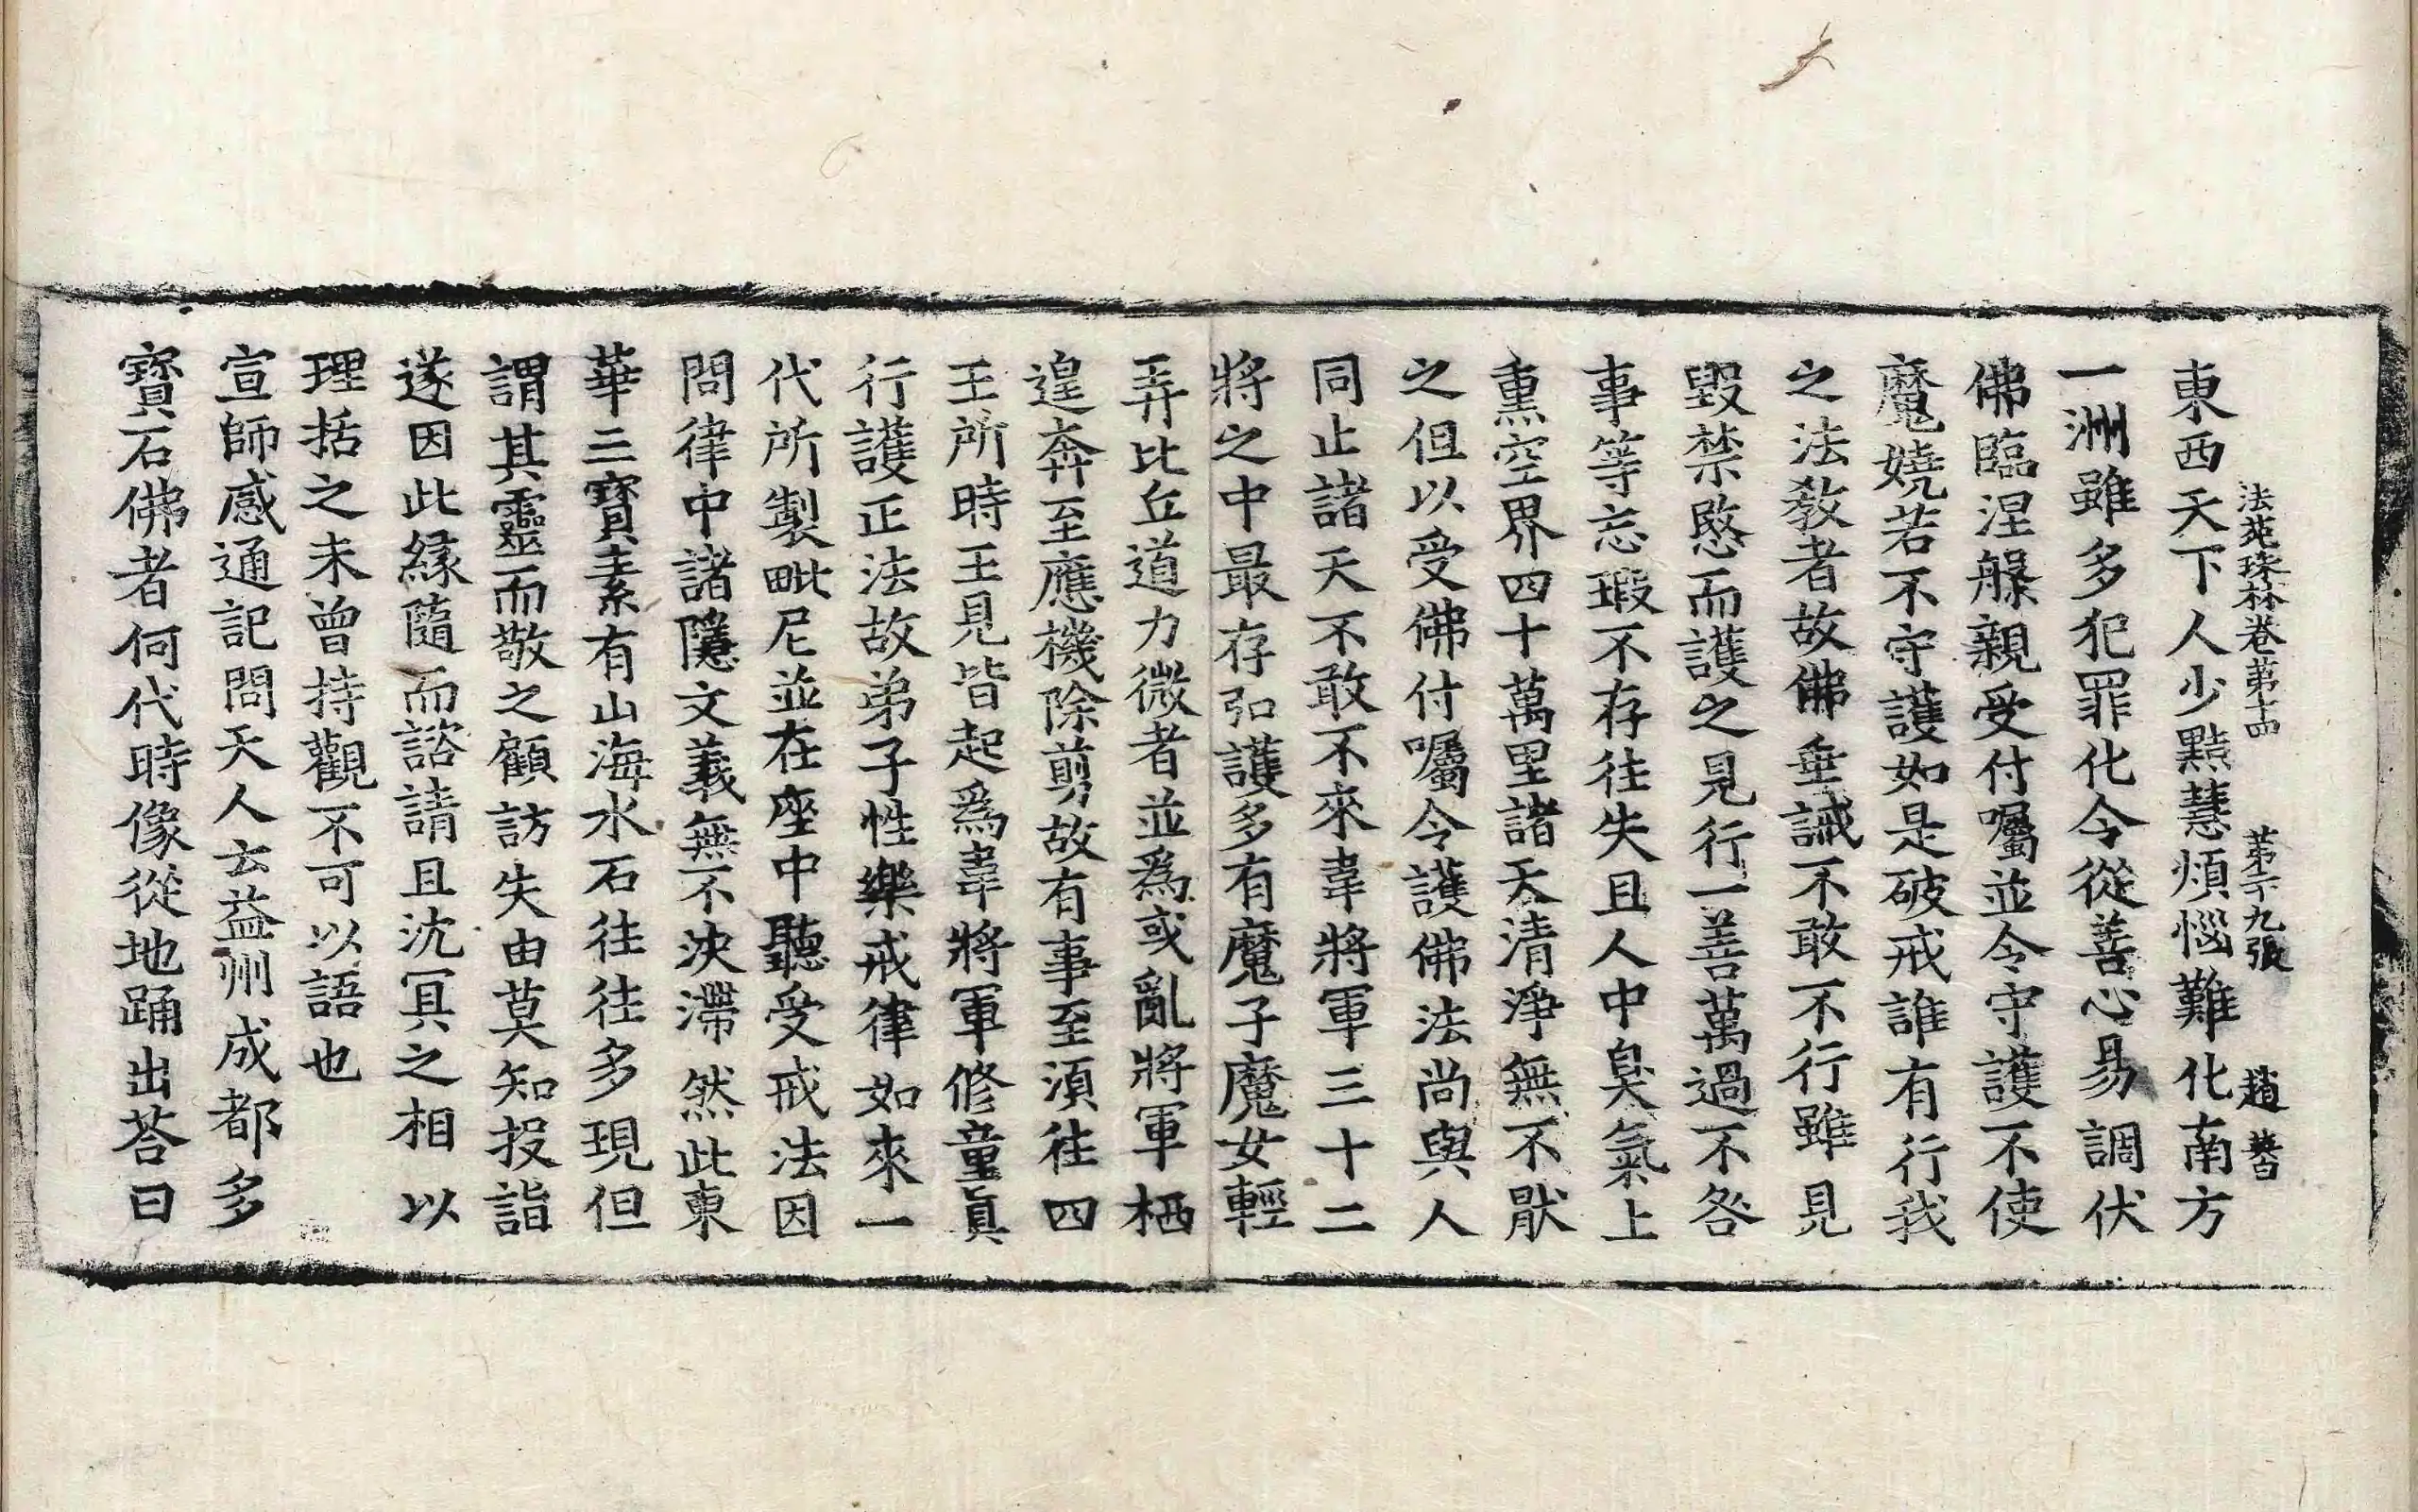 東西天下人少黠慧煩惱難化南方
法苑珠林卷第十四 第二十九張 趙
一洲雖多犯罪化令從善心易調伏
佛臨涅槃親受付囑並令守護不使
魔嬈若不守護如是破戒誰有行我
之法教者故佛垂誡不敢不行雖見
毀禁愍而護之見行一善萬過不咎
事等忘瑕不存往失且人中臭氣上
熏空界四十萬里諸天清淨無不厭
之但以受佛付囑令護佛法尚與人
同止諸天不敢不來韋將軍三十二
將之中最存弘護多有魔子魔女輕
弄比丘道力微者並為或亂將軍栖
遑奔至應機除剪故有事至須往四
王所時王見皆起為韋將軍修童真
行護正法故弟子性樂戒律如來一
代所製毗尼並在座中聽受戒法因
問律中諸隱文義無不決滯然此東
華三寶素有山海水石往往多現但
謂其靈而敬之顧訪失由莫知投詣
遂因此緣隨而諮請且沈冥之相以
理括之未曾持觀不可以語也
宣師感通記問天人云益州成都多
寶石佛者何代時像從地踊出荅曰